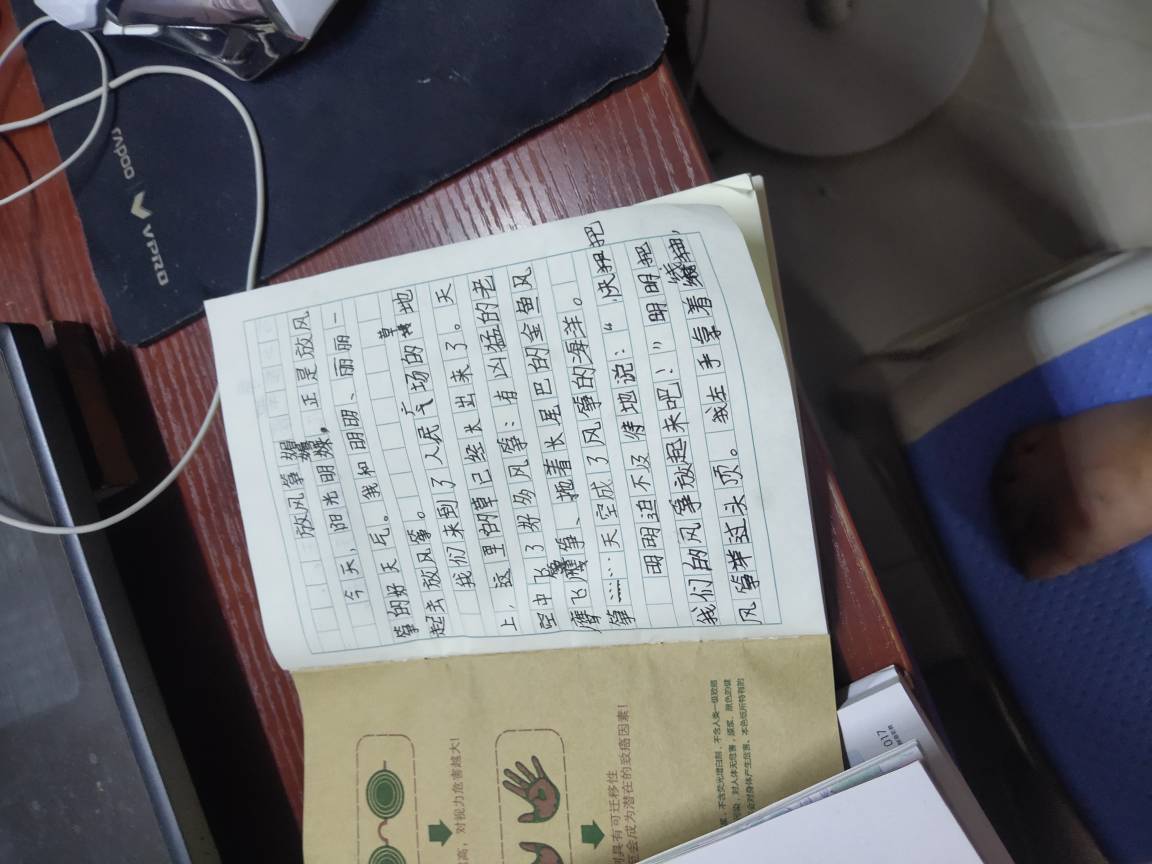 放风筝
今天,阳光明媚,正是放风
筝的好天气。我和明明、丽丽一
起去放风筝。
我们来到了人民广场的草地
上,这里的草已经长出来了。天
空中飞了好多风筝:有凶猛的老
鹰飞筝、拖着长尾巴的金鱼风
筝……天空成了风筝的海洋。
明明迫不及待地说:“快把
我们的风筝放起来吧!”明明把
风筝举过头顶。我左手拿着线轴,
对视力危害越大!
具有可迁移性
会成为潜在的致癌因素!
VPRO
rapoo
017